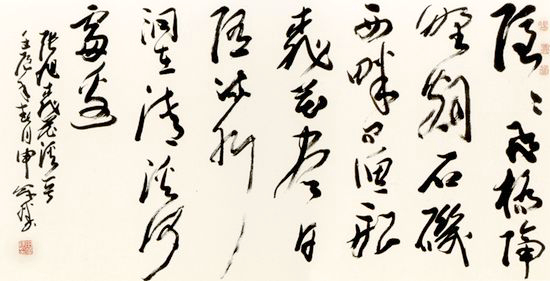 隱〻飛橋隔
野烟石磯
西畔問漁船
桃花盡日
隨流水
洞在清溪何
處邊
張旭桃花溪